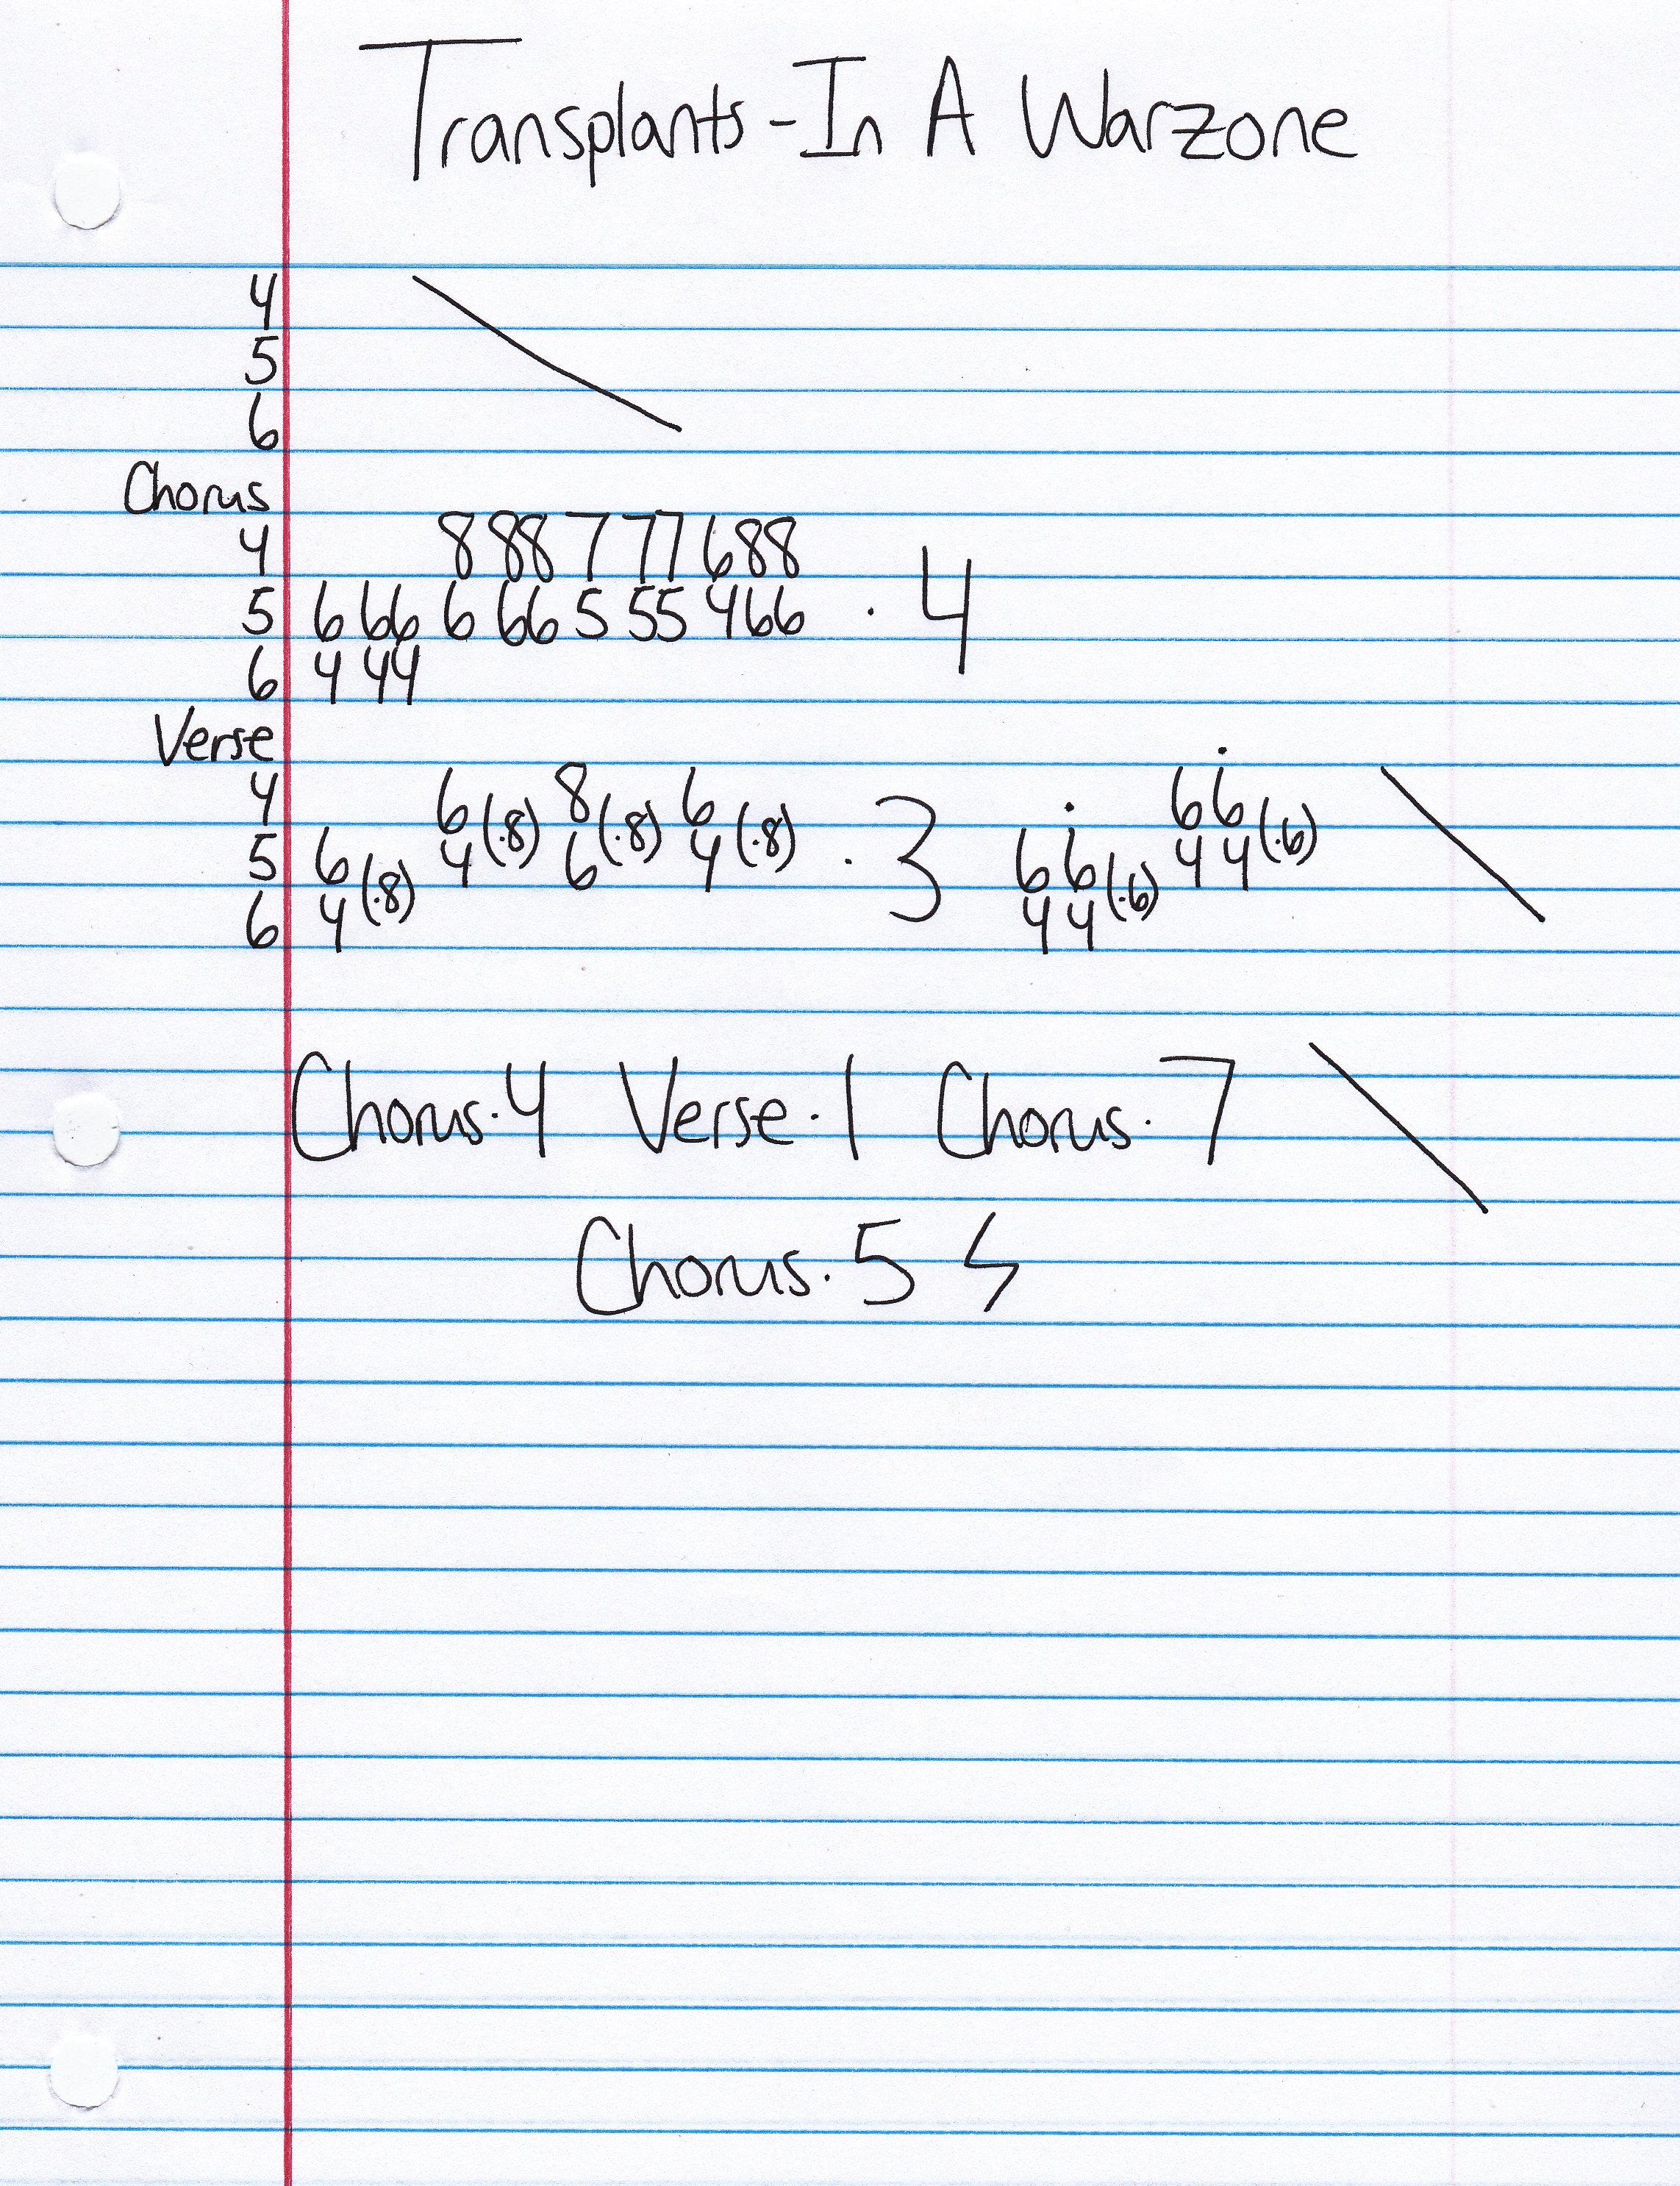 Transplants - In A Warzone
4
5
6
Chorus
4 8 88 7 77 688
5 6 66 6 66 5 55 466 · 4
6 4 44
Verse
4 6 (·8) 8 (·8) 6 (·8) · 3 66 (·6)
5 6 (·8) 4 6 4 66 (·6) 44
6 4 44
Chorus·4 Verse·1 Chorus·7
Chorus·5